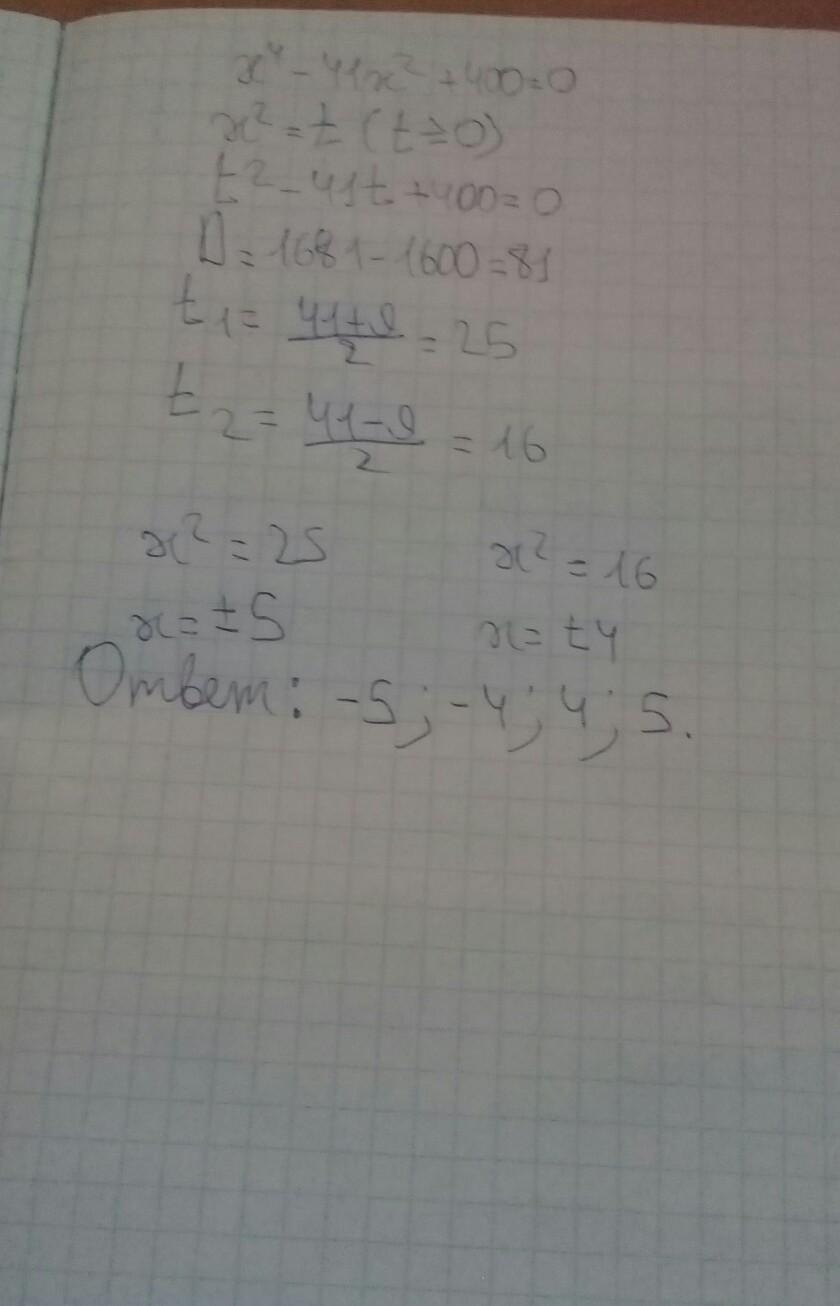 x⁴ - 41x² + 400 = 0
x² = t (t ≥ 0)
t² - 41t + 400 = 0
D = 1681 - 1600 = 81
t₁ = (41+9)/2 = 25
t₂ = (41-9)/2 = 16
x² = 25 x² = 16
x = ±5 x = ±4
Ответ: -5; -4; 4; 5.